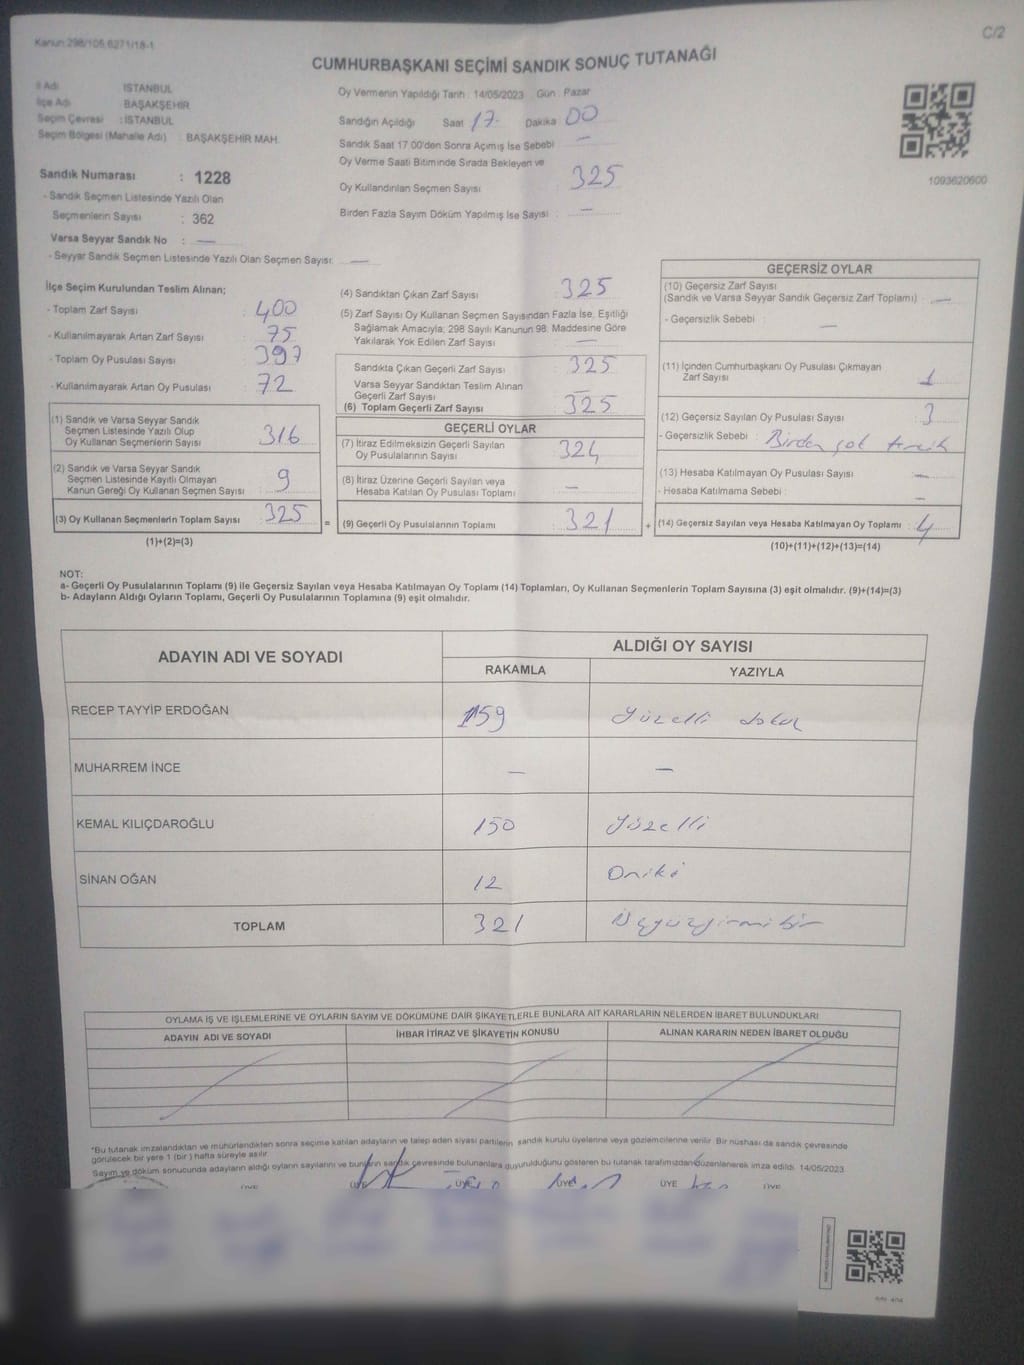 Kanun:298/105,6271/18-1
C/2
CUMHURBAŞKANI SEÇİMİ SANDIK SONUÇ TUTANAĞI
İl Adı : İSTANBUL
İlçe Adı : BAŞAKŞEHİR
Seçim Çevresi : İSTANBUL
Seçim Bölgesi (Mahalle Adı) : BAŞAKŞEHİR MAH.
Sandık Numarası : 1228
- Sandık Seçmen Listesinde Yazılı Olan
Seçmenlerin Sayısı : 362
Varsa Seyyar Sandık No : —
- Seyyar Sandık Seçmen Listesinde Yazılı Olan Seçmen Sayısı: —
Oy Vermenin Yapıldığı Tarih : 14/05/2023 Gün : Pazar
Sandığın Açıldığı Saat 17 Dakika 00
Sandık Saat 17.00'den Sonra Açımış İse Sebebi —
Oy Verme Saati Bitiminde Sırada Bekleyen ve
Oy Kullandırılan Seçmen Sayısı 325
Birden Fazla Sayım Döküm Yapılmış İse Sayısı : —
1093620600
İlçe Seçim Kurulundan Teslim Alınan;
- Toplam Zarf Sayısı : 400
- Kullanılmayarak Artan Zarf Sayısı : 75
- Toplam Oy Pusulası Sayısı : 397
- Kullanılmayarak Artan Oy Pusulası : 72
(1) Sandık ve Varsa Seyyar Sandık
Seçmen Listesinde Yazılı Olup
Oy Kullanan Seçmenlerin Sayısı : 316
(2) Sandık ve Varsa Seyyar Sandık
Seçmen Listesinde Kayıtlı Olmayan
Kanun Gereği Oy Kullanan Seçmen Sayısı : 9
(3) Oy Kullanan Seçmenlerin Toplam Sayısı : 325
(1)+(2)=(3)
=
(4) Sandıktan Çıkan Zarf Sayısı : 325
(5) Zarf Sayısı Oy Kullanan Seçmen Sayısından Fazla İse, Eşitliği
Sağlamak Amacıyla; 298 Sayılı Kanunun 98. Maddesine Göre
Yakılarak Yok Edilen Zarf Sayısı : —
Sandıkta Çıkan Geçerli Zarf Sayısı : 325
Varsa Seyyar Sandıktan Teslim Alınan
Geçerli Zarf Sayısı : —
(6) Toplam Geçerli Zarf Sayısı : 325
GEÇERLİ OYLAR
(7) İtiraz Edilmeksizin Geçerli Sayılan
Oy Pusulalarının Sayısı : 324
(8) İtiraz Üzerine Geçerli Sayılan veya
Hesaba Katılan Oy Pusulası Toplamı : —
(9) Geçerli Oy Pusulalarının Toplamı : 321
+
GEÇERSİZ OYLAR
(10) Geçersiz Zarf Sayısı
(Sandık ve Varsa Seyyar Sandık Geçersiz Zarf Toplamı) : —
- Geçersizlik Sebebi : —
(11) İçinden Cumhurbaşkanı Oy Pusulası Çıkmayan
Zarf Sayısı : 1
(12) Geçersiz Sayılan Oy Pusulası Sayısı : 3
- Geçersizlik Sebebi : Birden çok tercih
(13) Hesaba Katılmayan Oy Pusulası Sayısı : —
- Hesaba Katılmama Sebebi : —
(14) Geçersiz Sayılan veya Hesaba Katılmayan Oy Toplamı : 4
(10)+(11)+(12)+(13)=(14)
NOT:
a- Geçerli Oy Pusulalarının Toplamı (9) ile Geçersiz Sayılan veya Hesaba Katılmayan Oy Toplamı (14) Toplamları, Oy Kullanan Seçmenlerin Toplam Sayısına (3) eşit olmalıdır. (9)+(14)=(3)
b- Adayların Aldığı Oyların Toplamı, Geçerli Oy Pusulalarının Toplamına (9) eşit olmalıdır.
ADAYIN ADI VE SOYADI
ALDIĞI OY SAYISI
RAKAMLA YAZIYLA
RECEP TAYYİP ERDOĞAN 159 Yüzelli dokuz
MUHARREM İNCE — —
KEMAL KILIÇDAROĞLU 150 Yüzelli
SİNAN OĞAN 12 Oniki
TOPLAM 321 Üçyüzyirmibir
OYLAMA İŞ VE İŞLEMLERİNE VE OYLARIN SAYIM VE DÖKÜMÜNE DAİR ŞİKAYETLERLE BUNLARA AİT KARARLARIN NELERDEN İBARET BULUNDUKLARI
ADAYIN ADI VE SOYADI İHBAR İTİRAZ VE ŞİKAYETİN KONUSU ALINAN KARARIN NEDEN İBARET OLDUĞU
*Bu tutanak imzalandıktan ve mühürlendikten sonra seçime katılan adayların ve talep eden siyasi partilerin sandık kurulu üyelerine veya gözlemcilerine verilir. Bir nüshası da sandık çevresinde
görülecek bir yere 1 (bir) hafta süreyle asılır.
Sayım ve döküm sonucunda adayların aldığı oyların sayılarını ve bunların sandık çevresinde bulunanlara duyurulduğunu gösteren bu tutanak tarafımızdan düzenlenerek imza edildi. 14/05/2023
ÜYE ÜYE ÜYE ÜYE ÜYE ÜYE